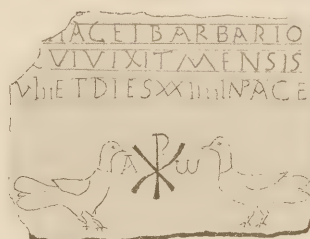 IACET BARBARIO
VI VIXIT MENSIS
VIII ET DIES XXIIII IN PACE
A ☧ ω